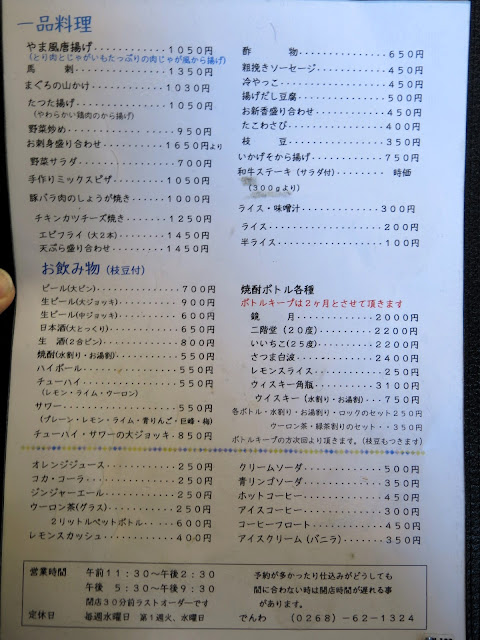 一品料理
やま風唐揚げ・・・・・・・・・・1050円
(とり肉とじゃがいもたっぷりの肉じゃが風から揚げ)
馬　　刺・・・・・・・・・・・・1350円
まぐろの山かけ・・・・・・・・・1030円
たつた揚げ・・・・・・・・・・・1050円
(やわらかい鶏肉のから揚げ)
野菜炒め・・・・・・・・・・・・950円
お刺身盛り合わせ・・・・・・・・1650円より
野菜サラダ・・・・・・・・・・・700円
手作りミックスピザ・・・・・・・1050円
豚バラ肉のしょうが焼き・・・・・1000円
チキンカツチーズ焼き・・・・・・1250円
エビフライ (大2本)・・・・・・・1450円
天ぷら盛り合わせ・・・・・・・・1450円
酢　　物・・・・・・・・・・・・650円
粗挽きソーセージ・・・・・・・・450円
冷やっこ・・・・・・・・・・・・450円
揚げだし豆腐・・・・・・・・・・500円
お新香盛り合わせ・・・・・・・・450円
たこわさび・・・・・・・・・・・400円
枝　　豆・・・・・・・・・・・・350円
いかげそから揚げ・・・・・・・・750円
和牛ステーキ (サラダ付)・・・・・時価
(300gより)
ライス・味噌汁・・・・・・・・・300円
ライス・・・・・・・・・・・・・200円
半ライス・・・・・・・・・・・・100円
お飲み物 (枝豆付)
ビール(大ビン)・・・・・・・・・700円
生ビール(大ジョッキ)・・・・・・900円
生ビール(中ジョッキ)・・・・・・600円
日本酒(大とっくり)・・・・・・・650円
生　酒(2合ビン)・・・・・・・・800円
焼酎(水割り・お湯割)・・・・・・550円
ハイボール・・・・・・・・・・・550円
チューハイ・・・・・・・・・・・550円
(レモン・ライム・ウーロン)
サワー・・・・・・・・・・・・・550円
(プレーン・レモン・ライム・青りんご・巨峰・梅)
チューハイ・サワーの大ジョッキ・850円
焼酎ボトル各種
ボトルキープは2ヶ月とさせて頂きます
鏡　　月・・・・・・・・・・・・2000円
二階堂 (20度)・・・・・・・・・2200円
いいちこ(25度)・・・・・・・・2200円
さつま白波・・・・・・・・・・・2400円
レモンスライス・・・・・・・・・250円
ウィスキー角瓶・・・・・・・・・3100円
ウイスキー (水割り・お湯割)・・・750円
各ボトル・水割り・お湯割り・ロックのセット・250円
ウーロン茶・緑茶割りのセット・・350円
ボトルキープの方次回より頂きます。(枝豆もつきます)
オレンジジュース・・・・・・・・250円
コカ・コーラ・・・・・・・・・・250円
ジンジャーエール・・・・・・・・250円
ウーロン茶(グラス)・・・・・・・250円
2リットルペットボトル・・・・・600円
レモンスカッシュ・・・・・・・・400円
クリームソーダ・・・・・・・・・500円
青リンゴソーダ・・・・・・・・・350円
ホットコーヒー・・・・・・・・・450円
アイスコーヒー・・・・・・・・・300円
コーヒーフロート・・・・・・・・450円
アイスクリーム (バニラ)・・・・・350円
営業時間　午前11:30～午後2:30
午後 5:30～午後9:30
閉店30分前ラストオーダーです
定休日　毎週水曜日　第1週火、水曜日
予約が多かったり仕込みがどうしても
間に合わない時は開店時間が遅れる事
があります。
でんわ (0268)-62-1324